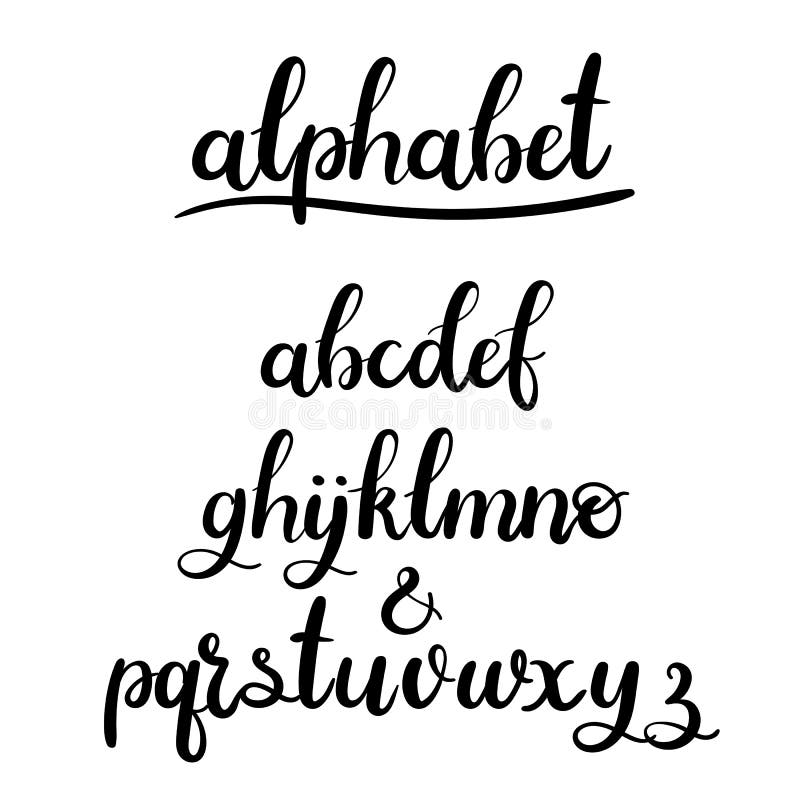 alphabet
abcdef
dreamstime
ghijklmno
&
pqrstuvwxyz